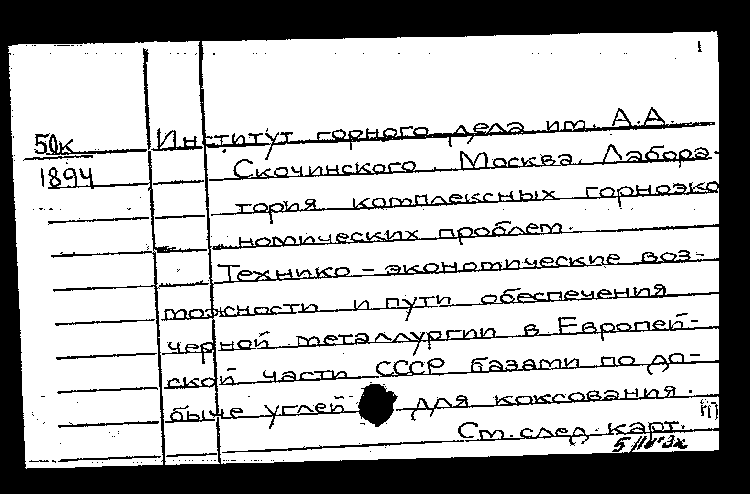 1
50к
1894
Институт горного дела им. А.А.
Скочинского. Москва. Лабора-
тория комплексных горноэко
номических проблем.
Технико-экономические воз-
можности и пути обеспечения
черной металлургии в Европей-
ской части СССР базами по до-
быче углей для коксования.
См. след. карт.